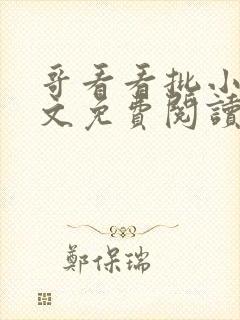 哥看看批小
文免費閱讀
鄭保瑞